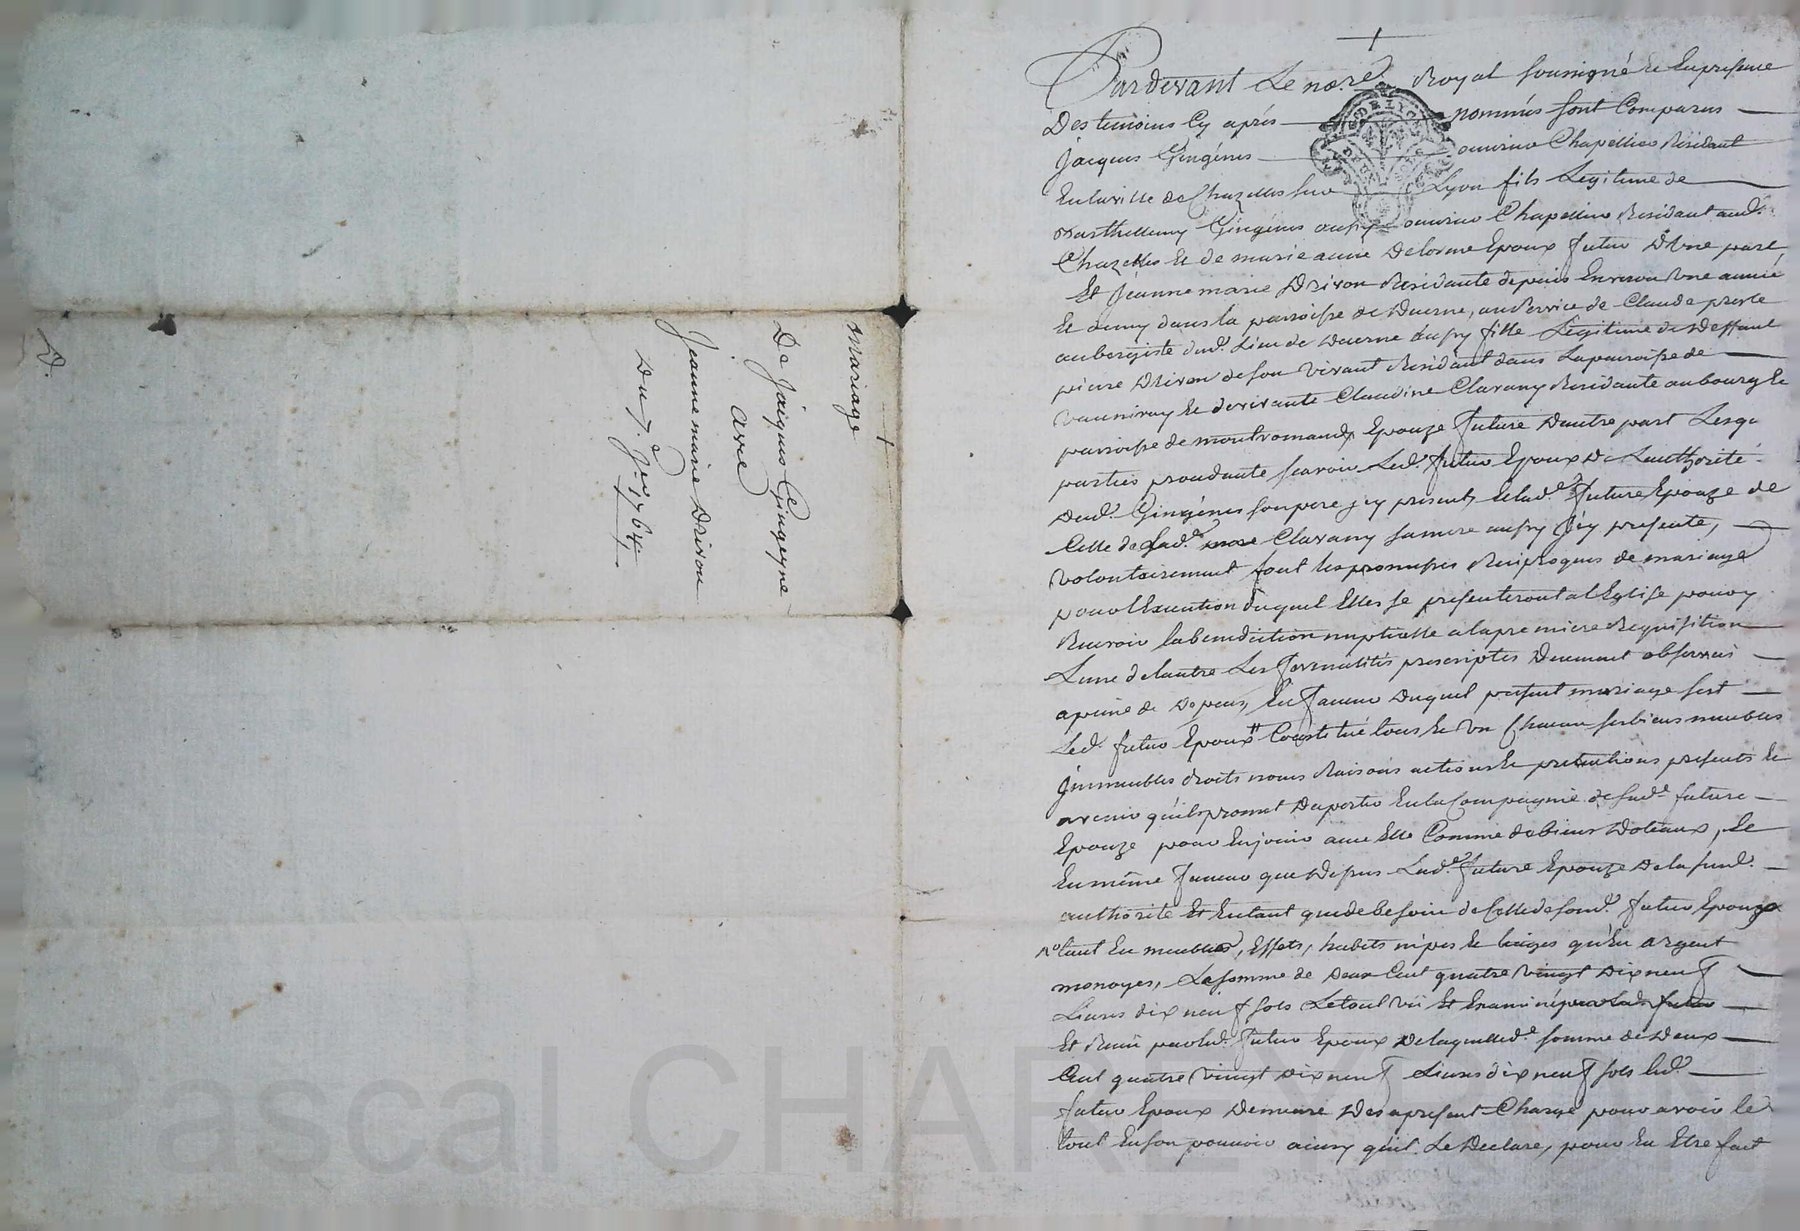 mariage
De Jaiques Gingeyne
avec
Jeanne marie Drivon
Du 7.e Jer 1764.
Pardevant Le nore Royal soussigné Et En presance
Des temoins Cy aprés nommés sont Comparus
Jacques Gingénes ouvrier Chapellier Résidant
En la ville de Chazelles sur Lyon fils Legitime de
Barthellemy Gingénes aussy ouvrier Chapellier Residant aud.
Chazelles Et de marie anne Delorme Epoux futur D'Une part,
Et Jéanne marie Drivon Residante depuis Environ Une année
Et demy dans la parroisse de Duerne, au service de Claude
aubergiste dud. Lieu de Duerne aussy fille Legitime de Deffunt
pierre Drivon de son Vivant Residant dans La parroisse de
Vaunéray Et de vivante Claudine Clavany Residante au bourg Et
parroisse de montromand, Epouze future D'autre part Lesqu
parties procedante scavoir Led. futur Epoux De L'authorité
Dud. Gingénes son pere jcy present, Et Lad.e future Epouze de
Celle de Lad.e Clavany sa mere aussy jcy presente,
Volontairement font les promesses Reciproques de mariage
pour l'Execution duquel Elles se presenteront a l'Eglise pour y
Recevoir la benediction nuptialle a la premiere Requisition
L'une de l'autre Les formalités prescriptes Duement observées
a peine de Depens, En faveur Duquel present mariage s'est
Led. futur Epoux Constitué tous Et Un Chacun ses biens meubles
jmmeubles droits noms Raisons actions Et pretentions presents Et
avenir qu'il promet D'aporter En la Compagnie de Lad.e future
Epouze pour En jouir avec Elle Comme de biens Dotaux, Et
En même faveur que Dessus Lad.e future Epouze De la sud.
authorité Et En tant que de besoin de Celle de sond. futur Epoux
tant En meubles, Effets, habits nipes Et linges qu'En argent
monoyes, La somme de Deux Cent quatre Vingt Dix neuf
Livres dix neuf sols Le tout Vû Et Examiné par Led. futur
Et Reçû par led. futur Epoux De laquelle d.e somme de Deux
Cent quatre Vingt Dix neuf Livres dix neuf sols led.
futur Epoux Demeure Des apresent Chargé pour avoir le
tout En son pouvoir ainsy qu'il Le Declare, pour En Etre fait
Pascal CHAREYRON